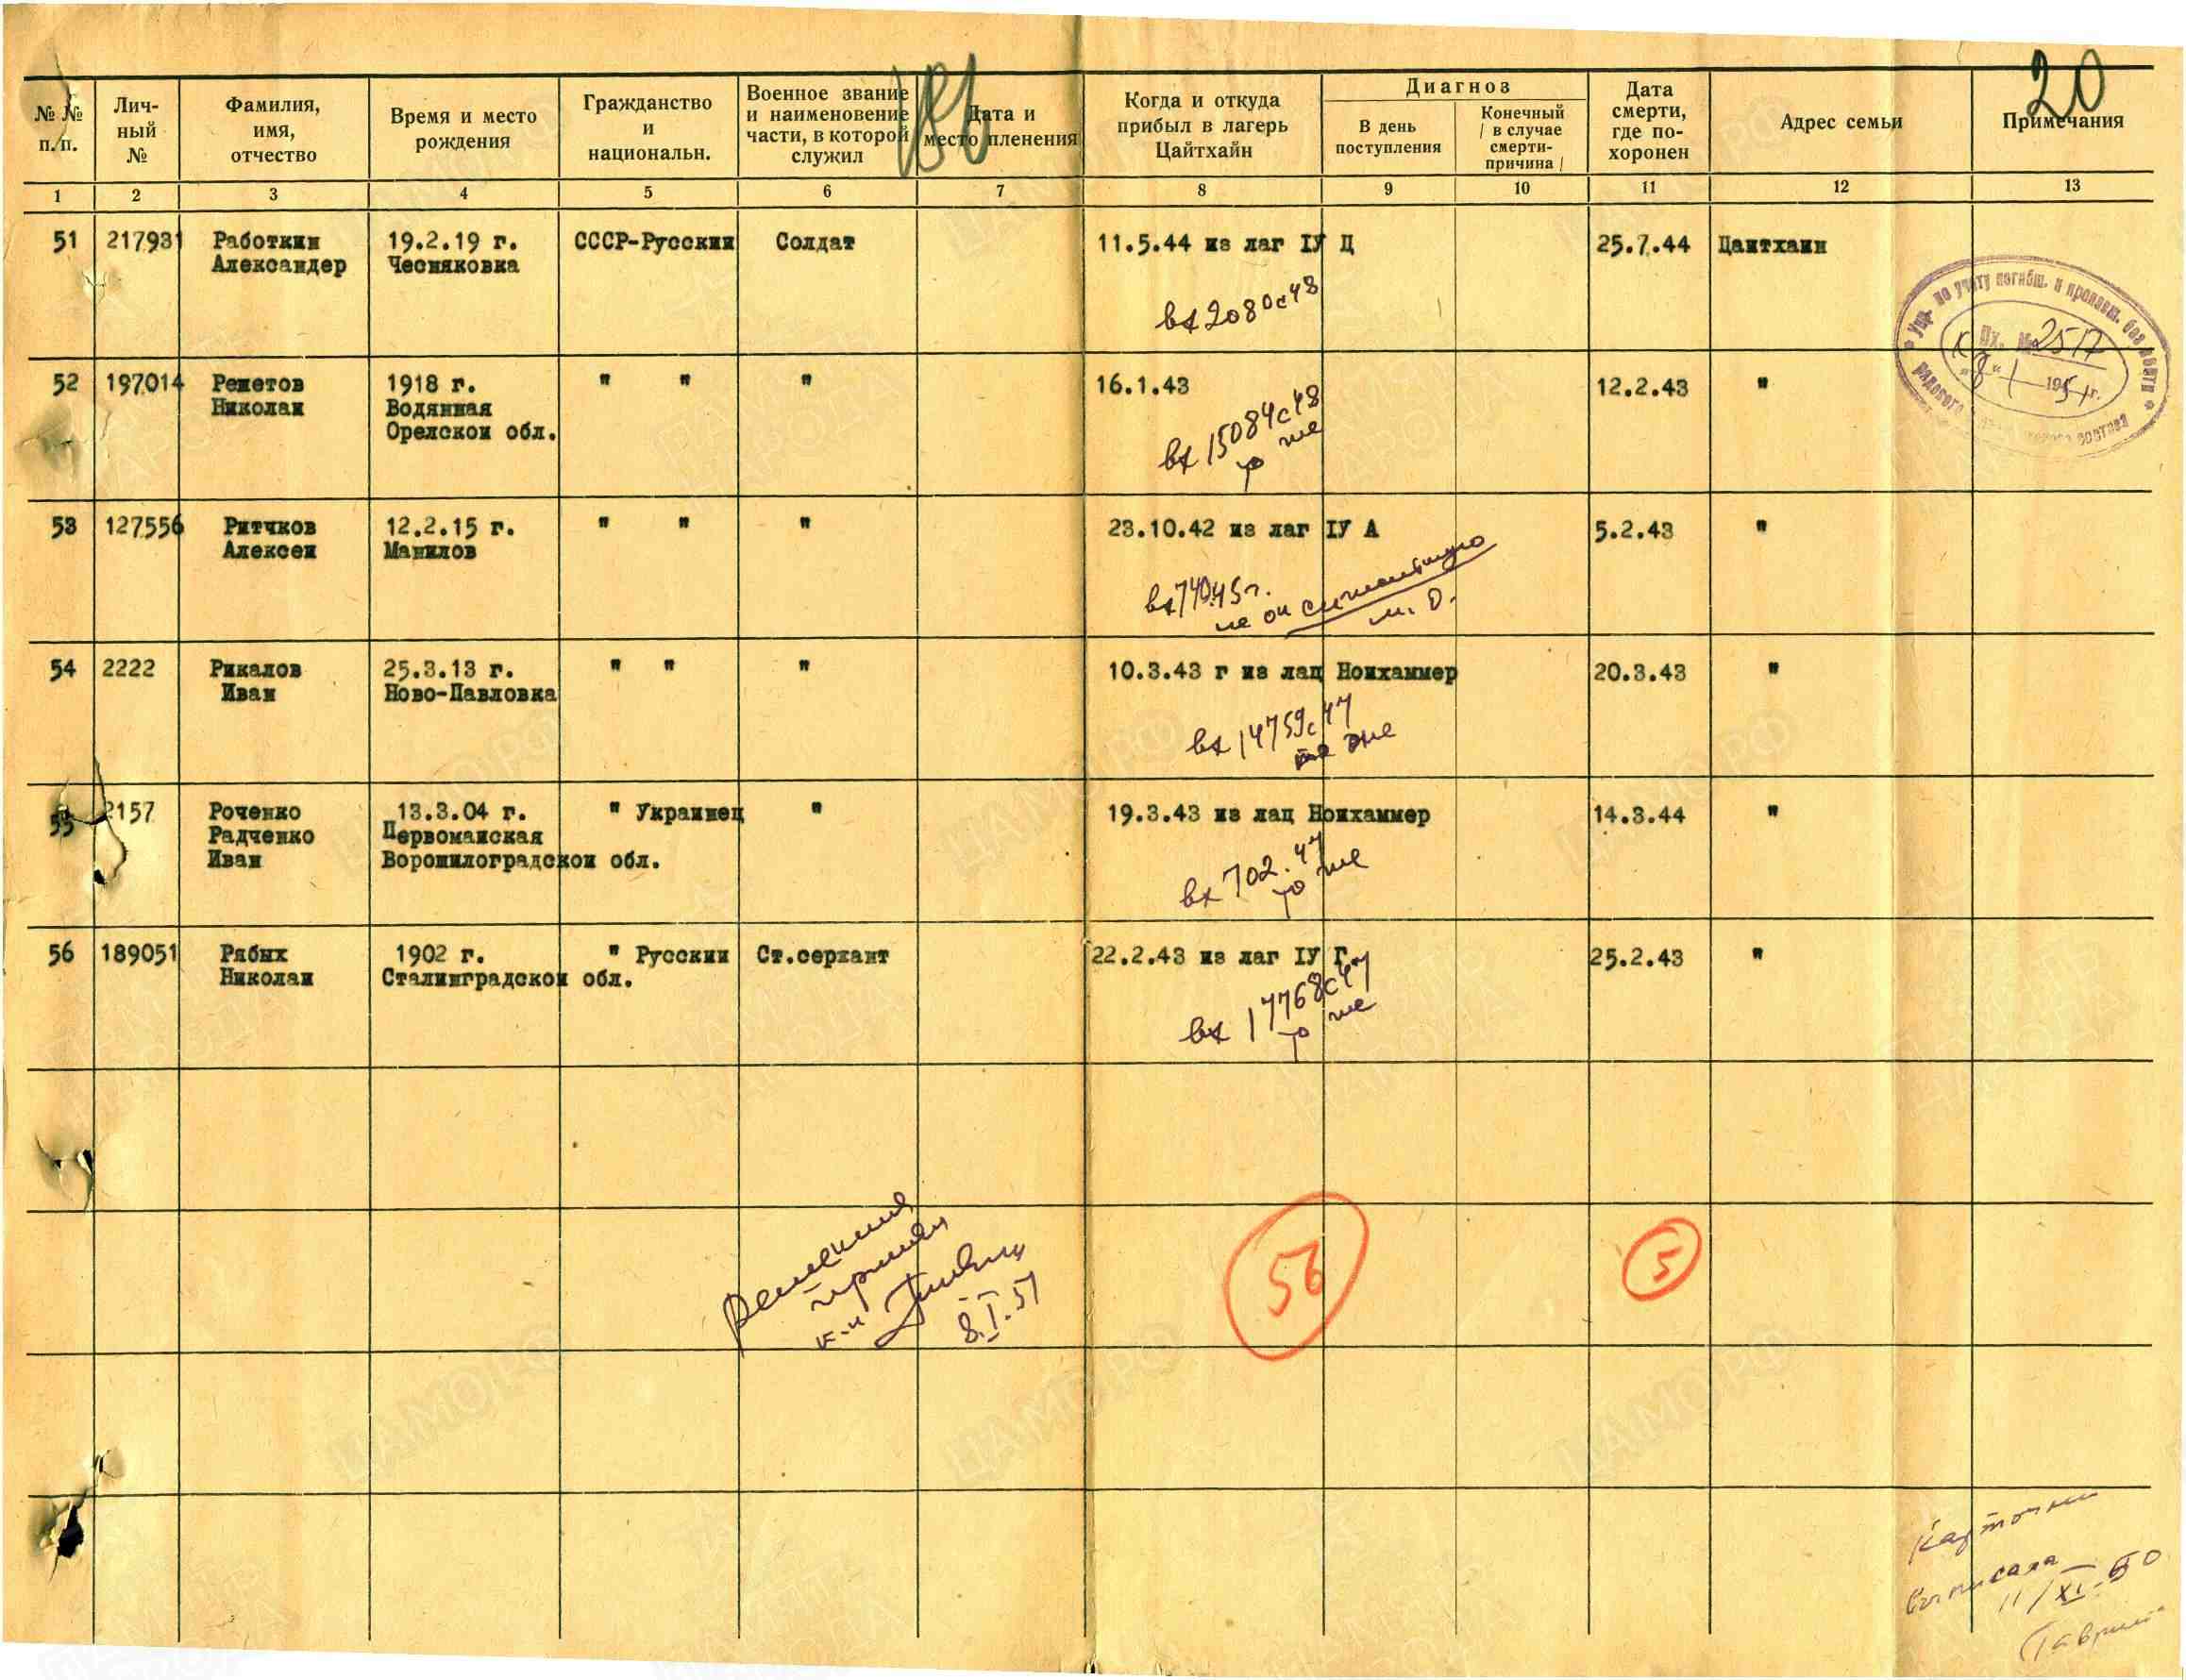 20
№ № п/п.
Лич-
ный
№
Фамилия,
имя,
отчество
Время и место
рождения
Гражданство
и
национальн.
Военное звание
и наименование
части, в которой
служил
Дата и
место пленения
Когда и откуда
прибыл в лагерь
Цайтхайн
Диагноз
В день
поступления
Конечный
/ в случае
смерти-
причина /
Дата
смерти,
где по-
хоронен
Адрес семьи
Примечания
1 2 3 4 5 6 7 8 9 10 11 12 13
51 217931 Работкин 19.2.19 г. СССР-Русский Солдат 11.5.44 из лаг IУ Д 25.7.44 Цайтхайн
Александер Чесняковка
вх 2080с48
52 197014 Решетов 1918 г. " " " 16.1.43 12.2.43 "
Николай Водянная
Орелской обл.
вх 15084с48
то же
53 127556 Ритчков 12.2.15 г. " " " 23.10.42 из лаг IУ А 5.2.43 "
Алексей Манилов
не он
м. о.
54 2222 Рикалов 25.3.13 г. " " " 10.3.43 г из лац Нойхаммер 20.3.43 "
Иван Ново-Павловка
вх 14759с47
то же
55 2157 Роченко 13.3.04 г. " Украинец " 19.3.43 из лац Нойхаммер 14.3.44 "
Радченко Первомайская
Иван Ворошилоградской обл.
вх 702.47
то же
56 189051 Рябых 1902 г. " Русский Ст.сержант 22.2.43 из лаг IУ Г 25.2.43 "
Николай Сталинградской обл.
вх 17768с47
то же
Упр. по учету погибш. и пропавш. без вести
рядового состава
К вх. № 2517
"8" I 1951 г.
8.I.51
56
5
Карточки
выписала
11/XI-50